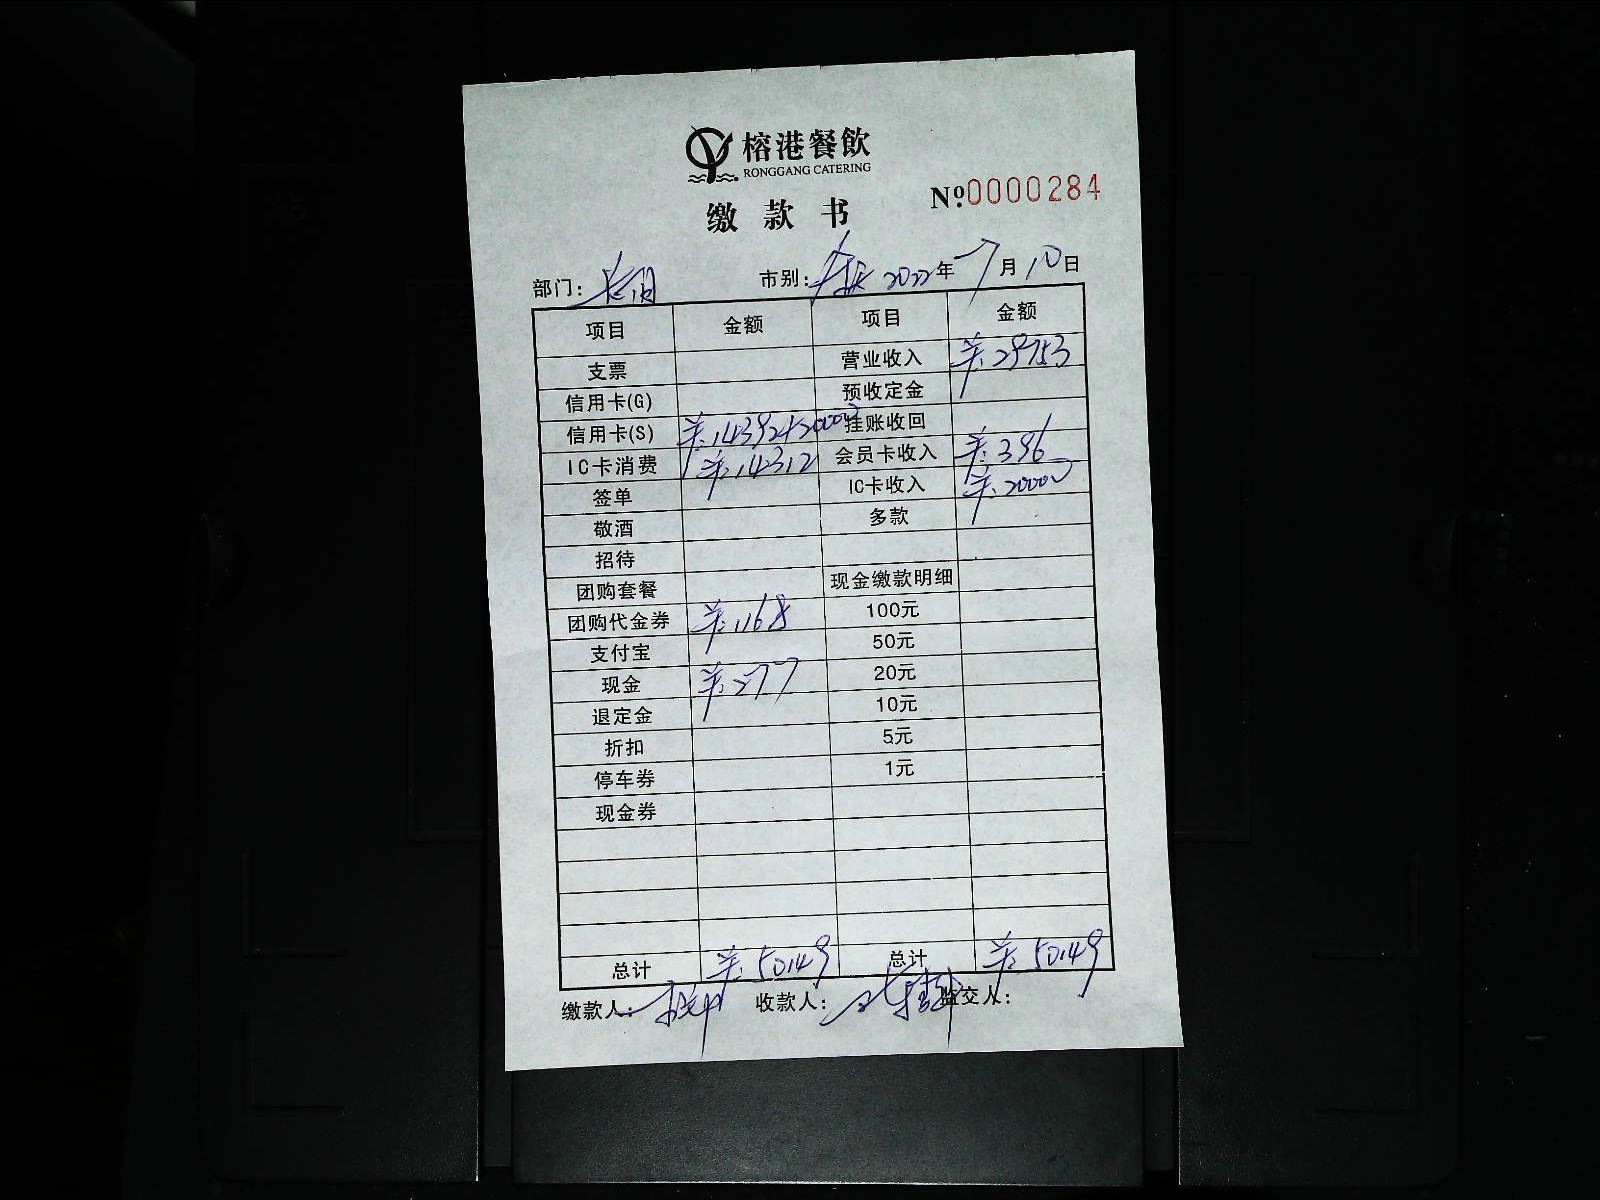 榕港餐飲
RONGGANG CATERING
№0000284
缴款书
部门： 市别： 2022年7月10日
项目 金额 项目 金额
支票 营业收入 ¥:29753
信用卡(G) 预收定金
信用卡(S) ¥:14392+20000 挂账收回
IC卡消费 ¥:14312 会员卡收入 ¥:396
签单 IC卡收入 ¥:20000
敬酒 多款
招待
团购套餐 现金缴款明细
团购代金券 ¥:1168 100元
支付宝 50元
现金 ¥:277 20元
退定金 10元
折扣 5元
停车券 1元
现金券
总计 ¥:50149 总计 ¥:50149
缴款人： 收款人： 监交人：